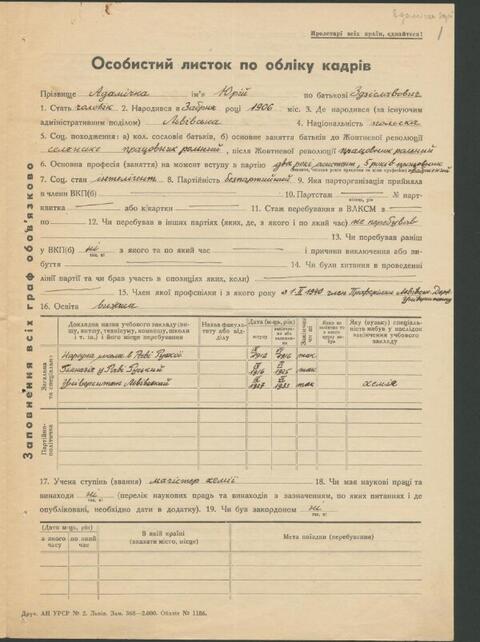 1
Пролетарі всіх країн, єднайтеся!
Особистий листок по обліку кадрів
Прізвище Адамічка ім'я Юрій по батькові
1. Стать чоловік 2. Народився в році 1906 міс. 3. Де народився (за існуючим
адміністративним поділом) Львівська 4. Національність польська
5. Соц. походження: а) кол. сословіє батьків, б) основне заняття батьків до Жовтневої революції
працовник рільний, після Жовтневої революції працовник рільний
6. Основна професія (заняття) на момент вступу в партію два роки асистент, 5 років
7. Соц. стан інтелігент 8. Партійність безпартійний 9. Яка парторганізація прийняла
в члени ВКП(б) 10. Партстаж № парт-
квитка або к/картки 11. Стаж перебування в ВЛКСМ з
по 12. Чи перебував в інших партіях (яких, де, з якого і по який час) не перебував
13. Чи перебував раніш
у ВКП(б) ні з якого та по який час і причини виключення або ви-
буття 14. Чи були хитання в проведенні
лінії партії та чи брав участь в опозиціях, яких, коли)
15. Член якої профспілки і з якого року з 1 1940 член Львівськ. Держ.
Університету
16. Освіта вища
Заповнення всіх граф обов'язково
Загальна та спеціальна
Партійно-політична
Докладна назва учбового закладу (вищу, втузу, технікуму, комвузу, школи і т. ін.) і його місце перебування
Назва факультету або відділу
Дата (м-ць, рік)
вступу
Яку (вузьку) спеціальність набув у наслідок закінчення учбового закладу
Народна школа в Раві Руській 1912 1916 так
Гімназія у Раві Руській 1916 1925 так
Університет Львівський 1927 1932 так хемія
17. Учена ступінь (звання) магістер хемії 18. Чи має наукові праці та
винаходи ні (перелік наукових праць та винаходів з зазначенням, по яких питаннях і де
так, ні
опубліковані, необхідно дати в додатку). 19. Чи був закордоном ні
так, ні
(Дата м-ць, рік)
з якого часу
по який час
В якій країні
(вказати місто, місце)
Мета поїздки (перебування)
Друк. АН УРСР № 2. Львів. Зам. 368—2.000. Обліт № 1186.